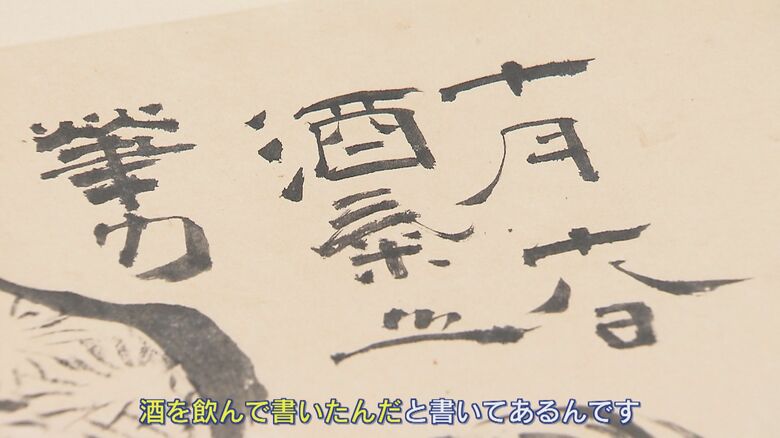 十月十八日
酒氣
筆力
酒を飲んで書いたんだと書いてあるんです